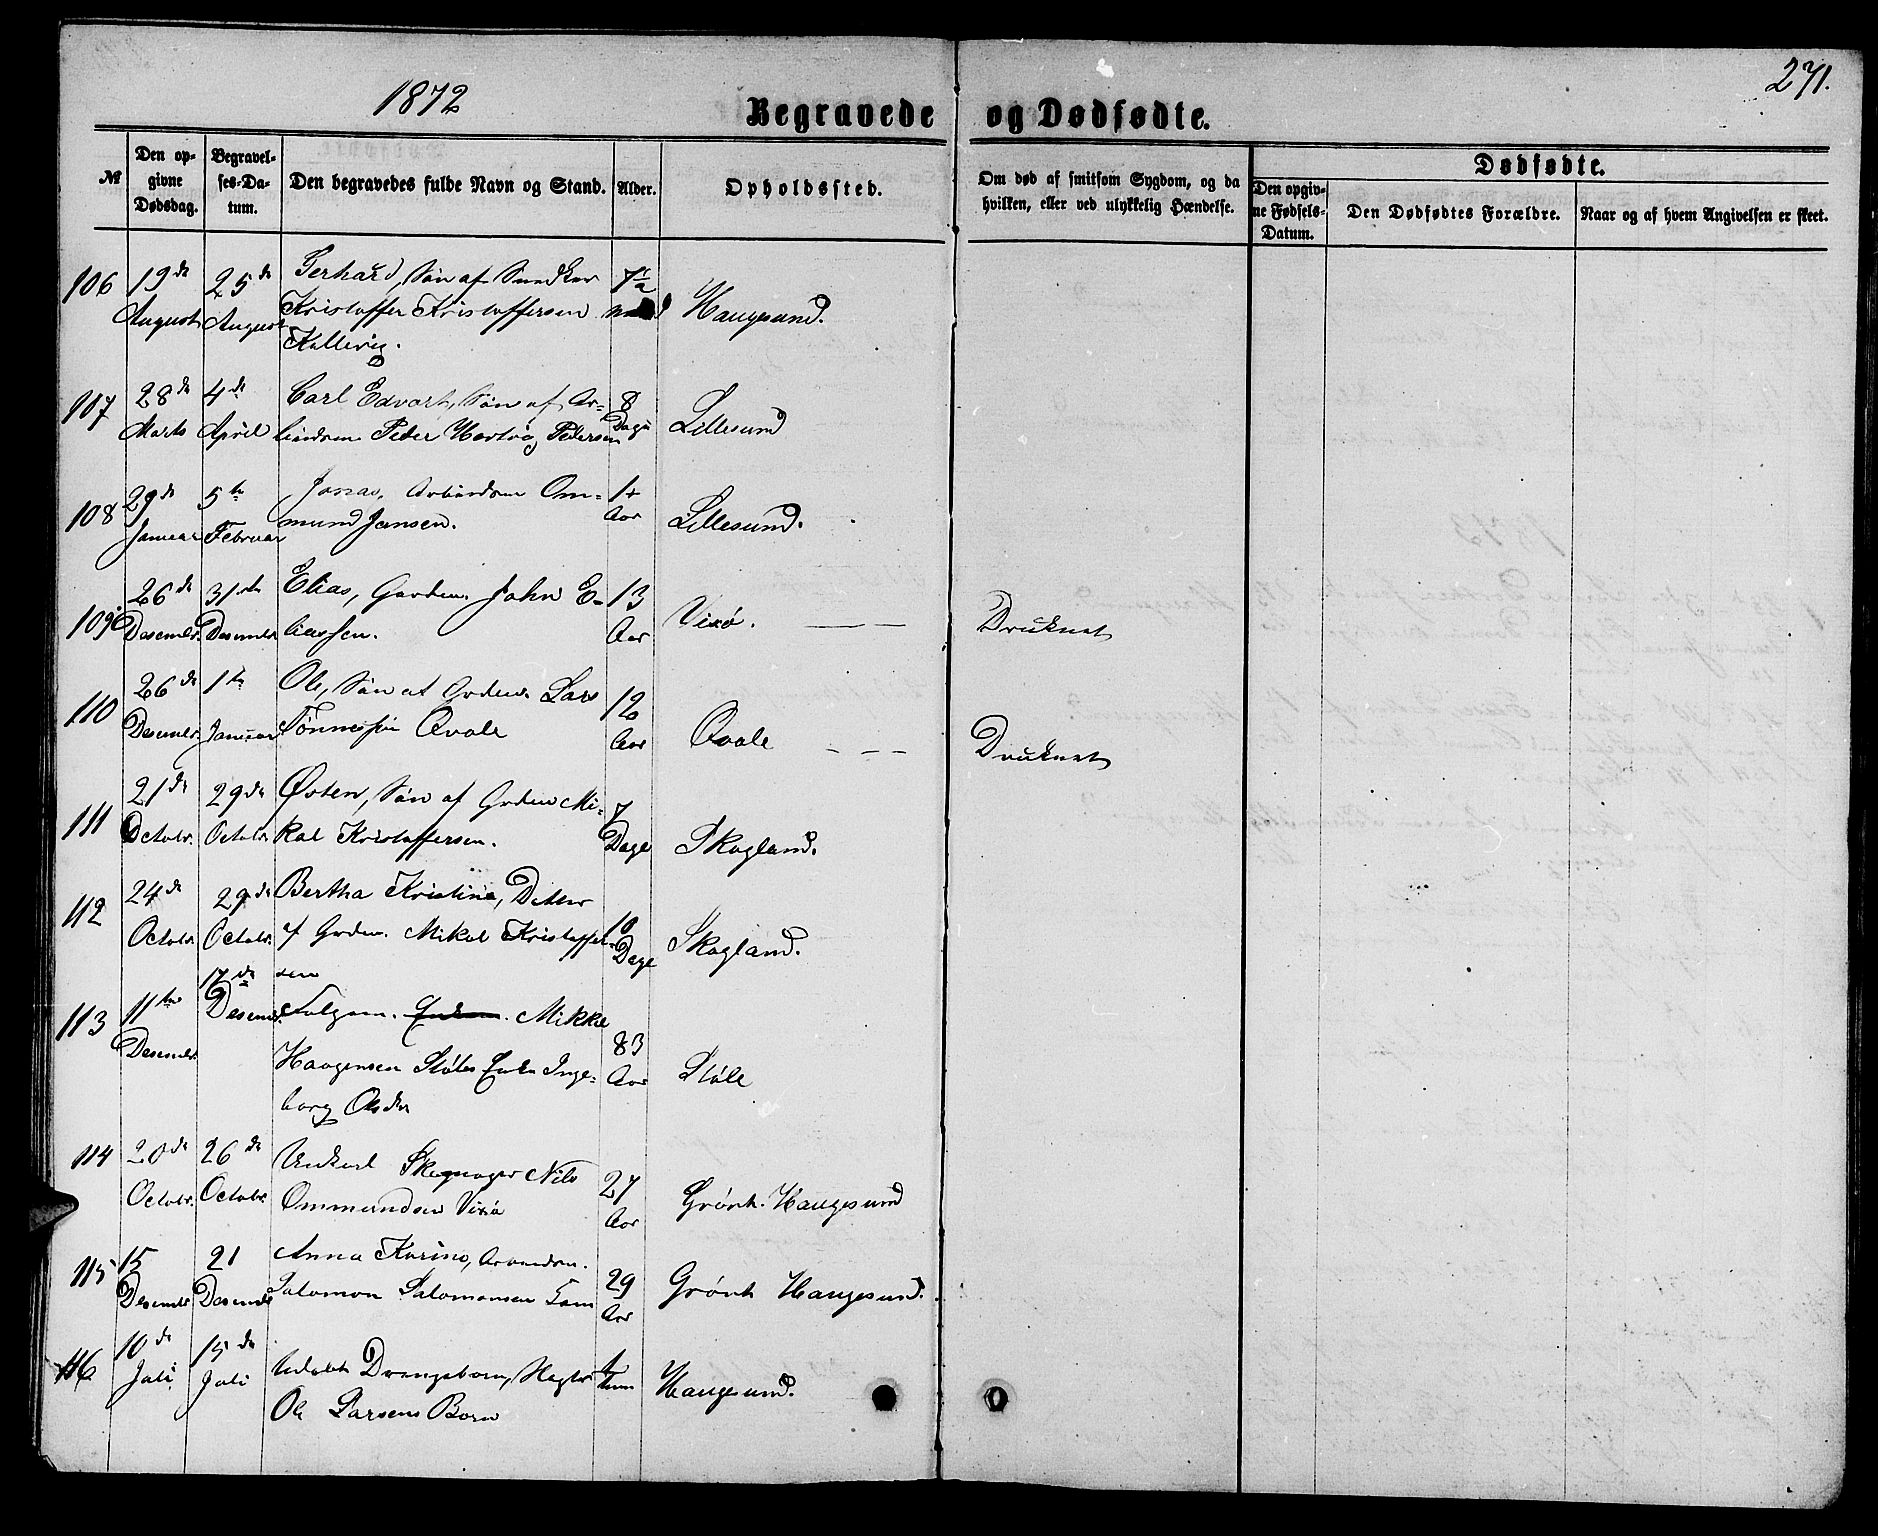 1872
271.
Begravede og Dødfødte.
№
Den opgivne Dødsdag.
Begravelses-Datum.
Den begravedes fulde Navn og Stand.
Alder.
Opholdssted.
Om død af smitsom Sygdom, og da hvilken, eller ved ulykkelig Hændelse.
Dødfødte.
Den opgivne Fødsels-Datum.
Den Dødfødtes Forældre.
Naar og af hvem Angivelsen er skeet.
106 19de 25de Gerhard, Søn af Snedker 7½
August August Kristoffer Kristoffersen Haugesund.
Kallevig.
107 28de 4de Carl Edvart, Søn af Ar- 8
Marts April beidsm Peder Hartvig Pedersen Dage Lillesund
108 29de 5te Jonas, Arbeidsm Om- 1
Januar Februar mund Jansen. Aar Lillesund.
109 26de 31te Elias, Gaardm. John E- 13
Desembr. Desembr. liassen. Aar Vixø. Druknet
110 26de 1te Ole, Søn af Grdm. Lars 12
Desembr. Januar Tønnessen Qvale Aar Qvale Druknet
111 21de 29de Østen, Søn af Grdm Mi- 7
Octobr. Octobr. kal Kristoffersen. Dage Skogland.
112 24de 29de Bertha Kristine, Datter 10
Octobr. Octobr. af Grdm. Mikal Kristoffer- Dage Skogland.
sen
113 11te 17de
Desembr. Desembr. Mikkel 83
Haagensen Støles Enke Inge- Aar Støle
borg Olsdtr
114 20de 26de Unkarl Skomager Nils 27
Octobr. Octobr. Ommundsen Vixø Aar Grønh. Haugesund
115 15 21 Anna Karine, Arbeidsm. 29
Desembr Desembr Salomon Salomonsen Aar Grønh Haugesund.
116 10de 15de
Juli Juli Udøbt Drengebarn, Haugesund.
Ole Larsens Barn